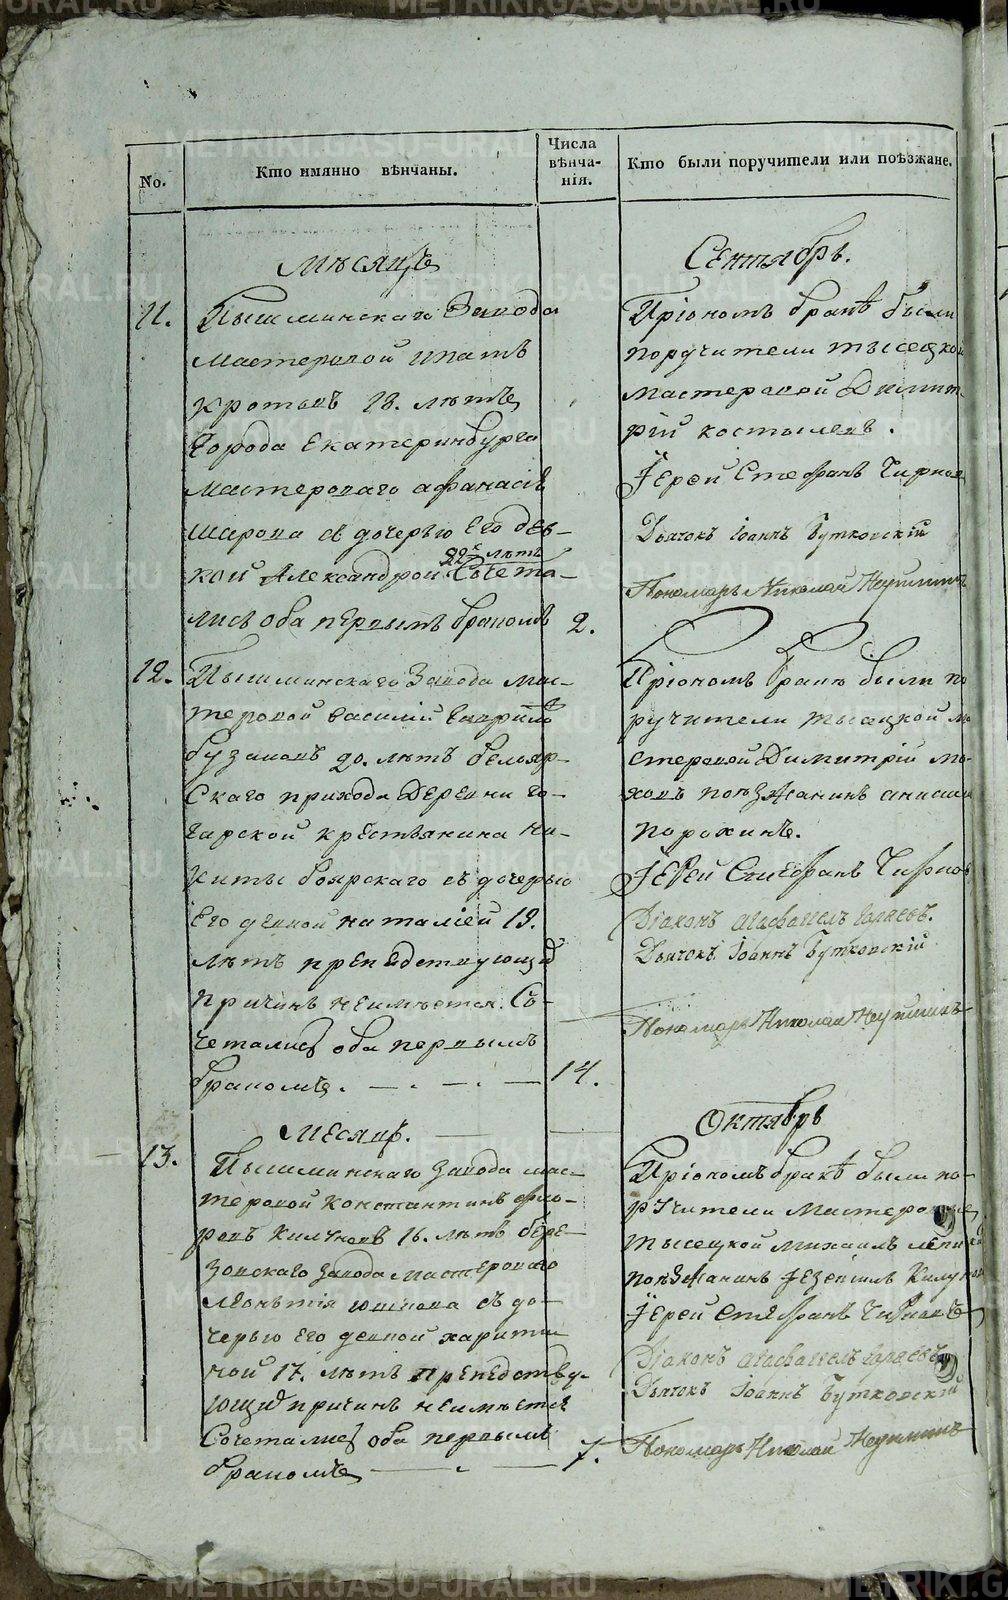 No.
Кто имянно вѣнчаны.
Числа
вѣнча-
нія.
Кто были поручители или поѣзжане.
Мѣсяцъ
Сентябрь.
11.
Пышминскаго Завода
мастеровой Ипатъ
Кротовъ 18. лѣтъ
Города Екатеринбурга
мастероваго Афанасія
Шарова съ дочерью Его дѣв-
22х лѣтъ
кой Александрой Сочета-
лись оба первымъ бракомъ
2.
Пріономъ бракѣ были
поручители тысецкой
мастеровой Димит-
рій Костылевъ.
Іерей Стефанъ
Дьячокъ Іоаннъ Бутковскій
Пономарь Николай
12.
Пышминскаго Завода мас-
теровой Василій
20. лѣтъ Белояр-
скаго прихода Деревни Га-
гарской крестьянина Ни-
киты Боярскаго съ дочерью
Его девкой Наталіей 19.
лѣтъ препедствующи
причинъ неимѣется. Со-
четались оба первымъ
бракомъ.
14.
Пріономъ бракѣ были по
ручители тысецкой ма
стеровой Димитрій
поѣзжанинъ
Порохинъ.
Іерей Стефанъ
Діаконъ
Дьячокъ Іоаннъ Бутковскій
Пономарь Николай
Месяцъ.
Октябрь
13.
Пышминскаго Завода мас-
теровой Константинъ Фло-
ровъ 16. лѣтъ Бере-
зовскаго Завода мастероваго
Леонтія Юшкова съ до-
черью Его девкой Харити-
ной 17. лѣтъ препедству-
ющи причинъ неимѣется
Сочетались оба первымъ
бракомъ
7.
Пріономъ бракѣ были по-
ручители Мастеровые
тысецкой Михаилъ
поѣзжанинъ
Іерей Стефанъ
Діаконъ
Дьячокъ Іоаннъ Бутковскій
Пономарь Николай
METRIKI.GASO-URAL.RU